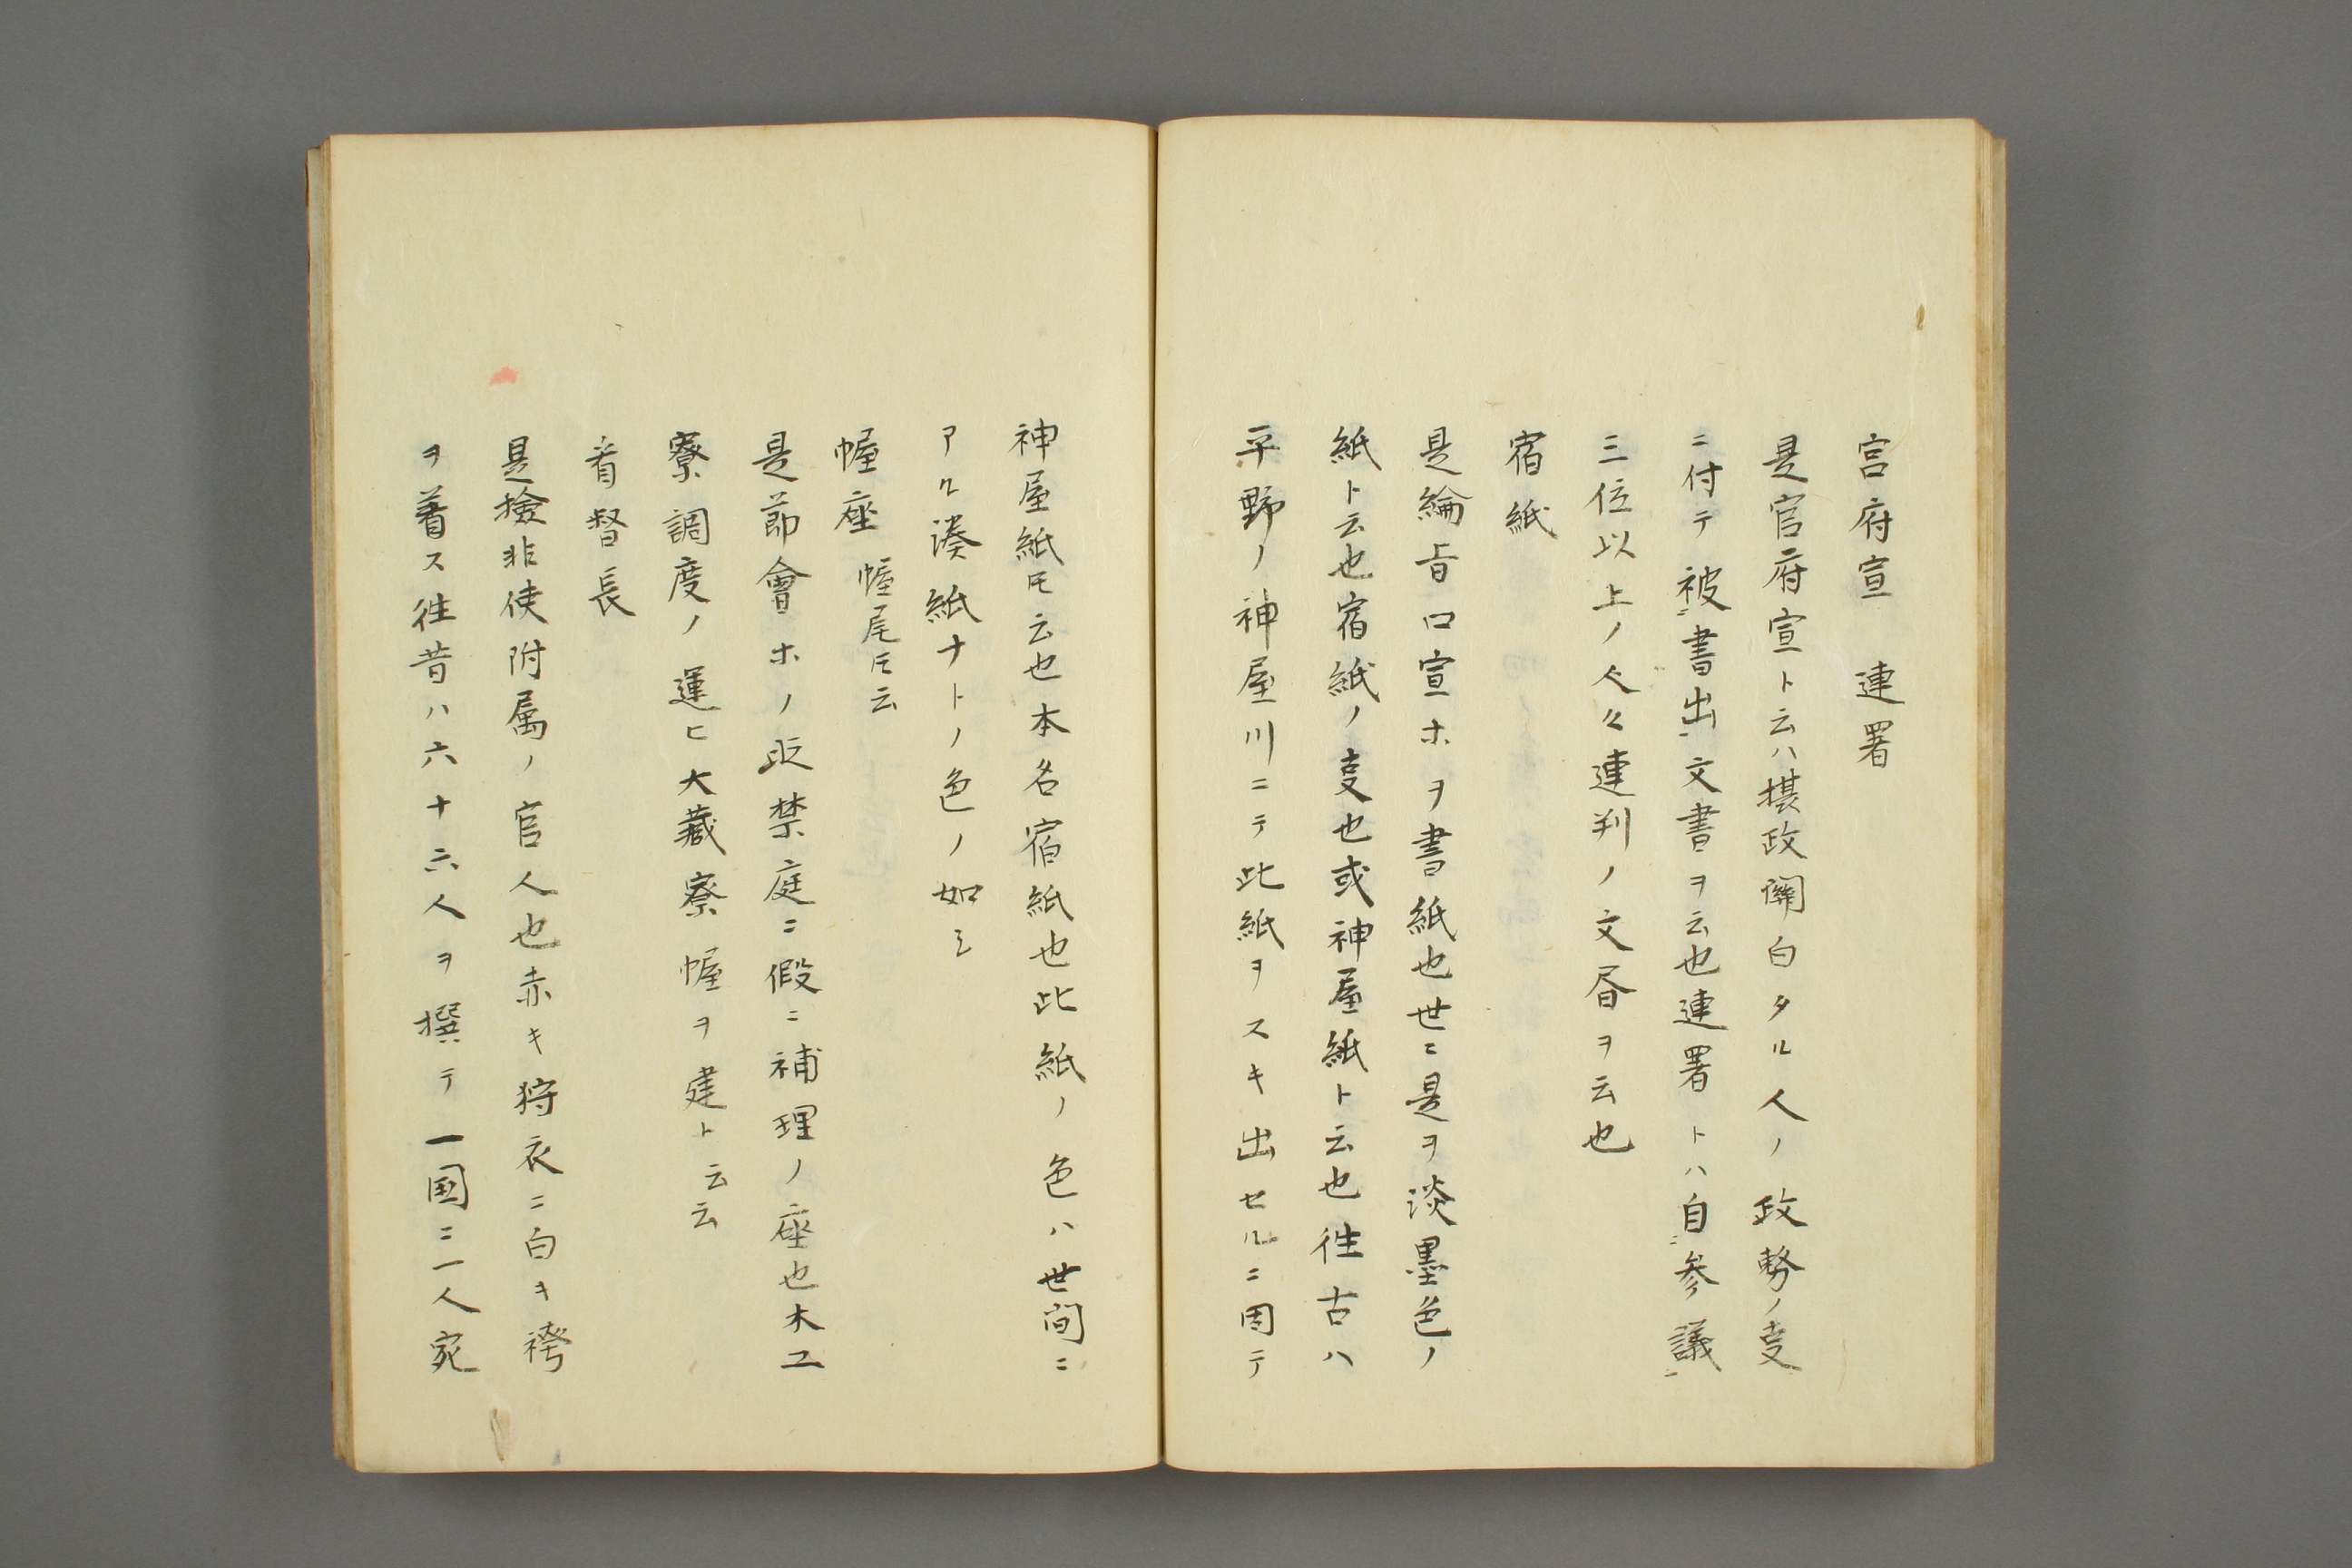 宮府宣　連署
是官府宣ト云ハ摂政関白タル人ノ政務ノ叓
ニ付テ被書出文書ヲ云也連署トハ自参議
三位以上ノ人々連判ノ文昏ヲ云也
宿紙
是綸旨口宣ホヲ書紙也世ニ是ヲ淡墨色ノ
紙ト云也宿紙ノ叓也或神屋紙ト云也往古ハ
平野ノ神屋川ニテ此紙ヲスキ出セルニ因テ
神屋紙𪜈云也本名宿紙也此紙ノ色ハ世間ニ
アル湊紙ナトノ色ノ如シ
幄座　幄尾𪜈云
是節會ホノ近禁庭ニ假ニ補理ノ座也木工
寮調度ノ運ヒ大藏寮幄ヲ建ト云云
看督長
是撿非使附属ノ官人也赤キ狩衣ニ白キ袴
ヲ着ス往昔ハ六十六人ヲ撰テ一国ニ一人宛